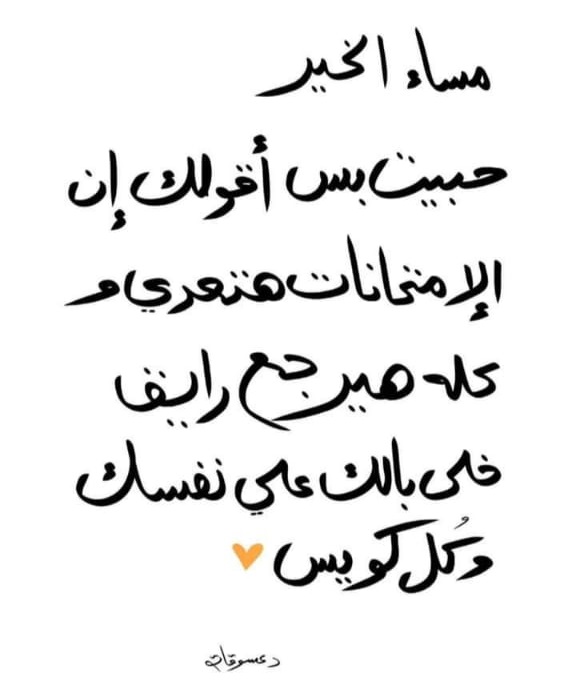 مساء الخير
حبيت بس أقولك إن
الإمتحانات هتعدي و
كله هيرجع رايق
خلى بالك علي نفسك
وُكل كويس
دعسوقات